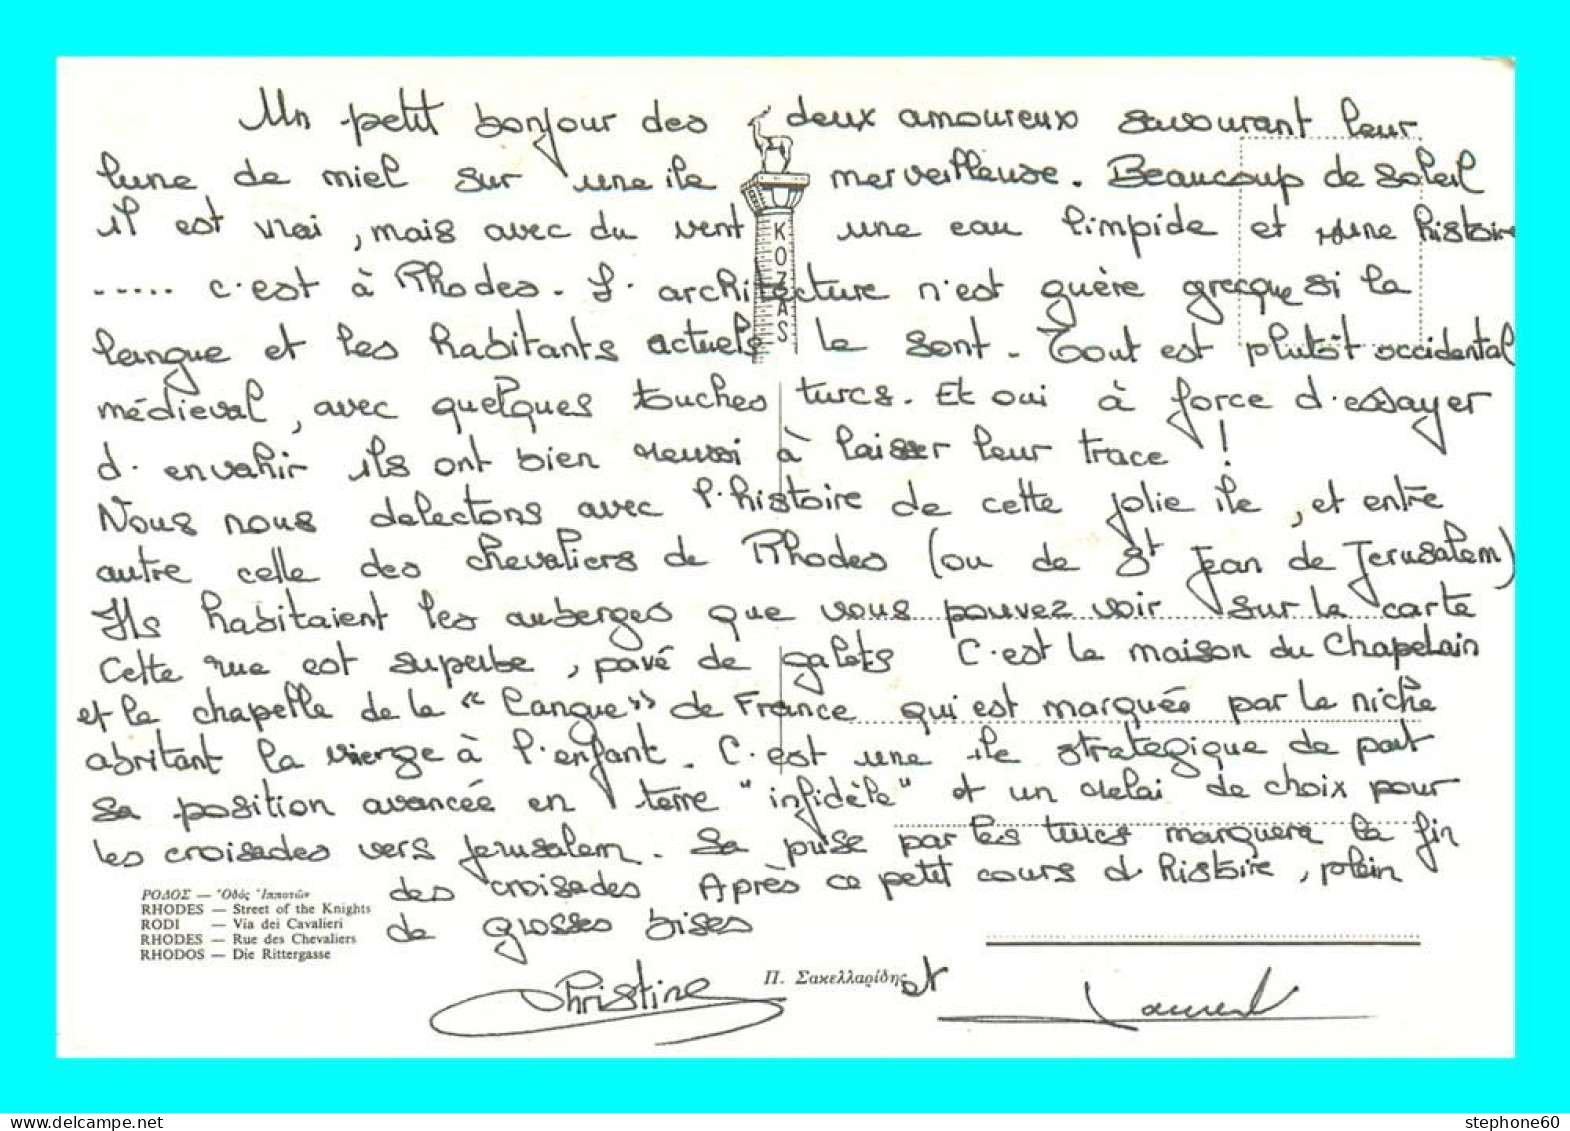 Un petit bonjour des deux amoureux savourant leur
lune de miel sur une ile merveilleuse. Beaucoup de soleil
il est vrai, mais avec du vent une eau limpide et une histoire
..... c'est à Rhodes. L'architecture n'est guère grecque si la
langue et les habitants actuels le sont. Tout est plutôt occidental
médieval, avec quelques touches turcs. Et oui à force d'essayer
d'envahir ils ont bien reussi à laisser leur trace !
Nous nous delectons avec l'histoire de cette jolie ile, et entre
autre celle des chevaliers de Rhodes (ou de St Jean de Jerusalem)
Ils habitaient les auberges que vous pouvez voir sur la carte
Cette rue est superbe, pavé de galets C'est la maison du Chapelain
et la chapelle de la "Langue" de France qui est marquée par la niche
abritant la vierge à l'enfant. C'est une ile strategique de part
sa position avancée en terre "infidèle" et un relai de choix pour
les croisades vers Jerusalem. Sa prise par les turcs marquera la fin
des croisades Après ce petit cours d'histoire, plein
de grosses bises
Christine et Laurent
KOZAS
ΡΟΔΟΣ — Ὁδός Ἱπποτῶν
RHODES — Street of the Knights
RODI — Via dei Cavalieri
RHODES — Rue des Chevaliers
RHODOS — Die Rittergasse
Π. Σακελλαρίδης
stephone60